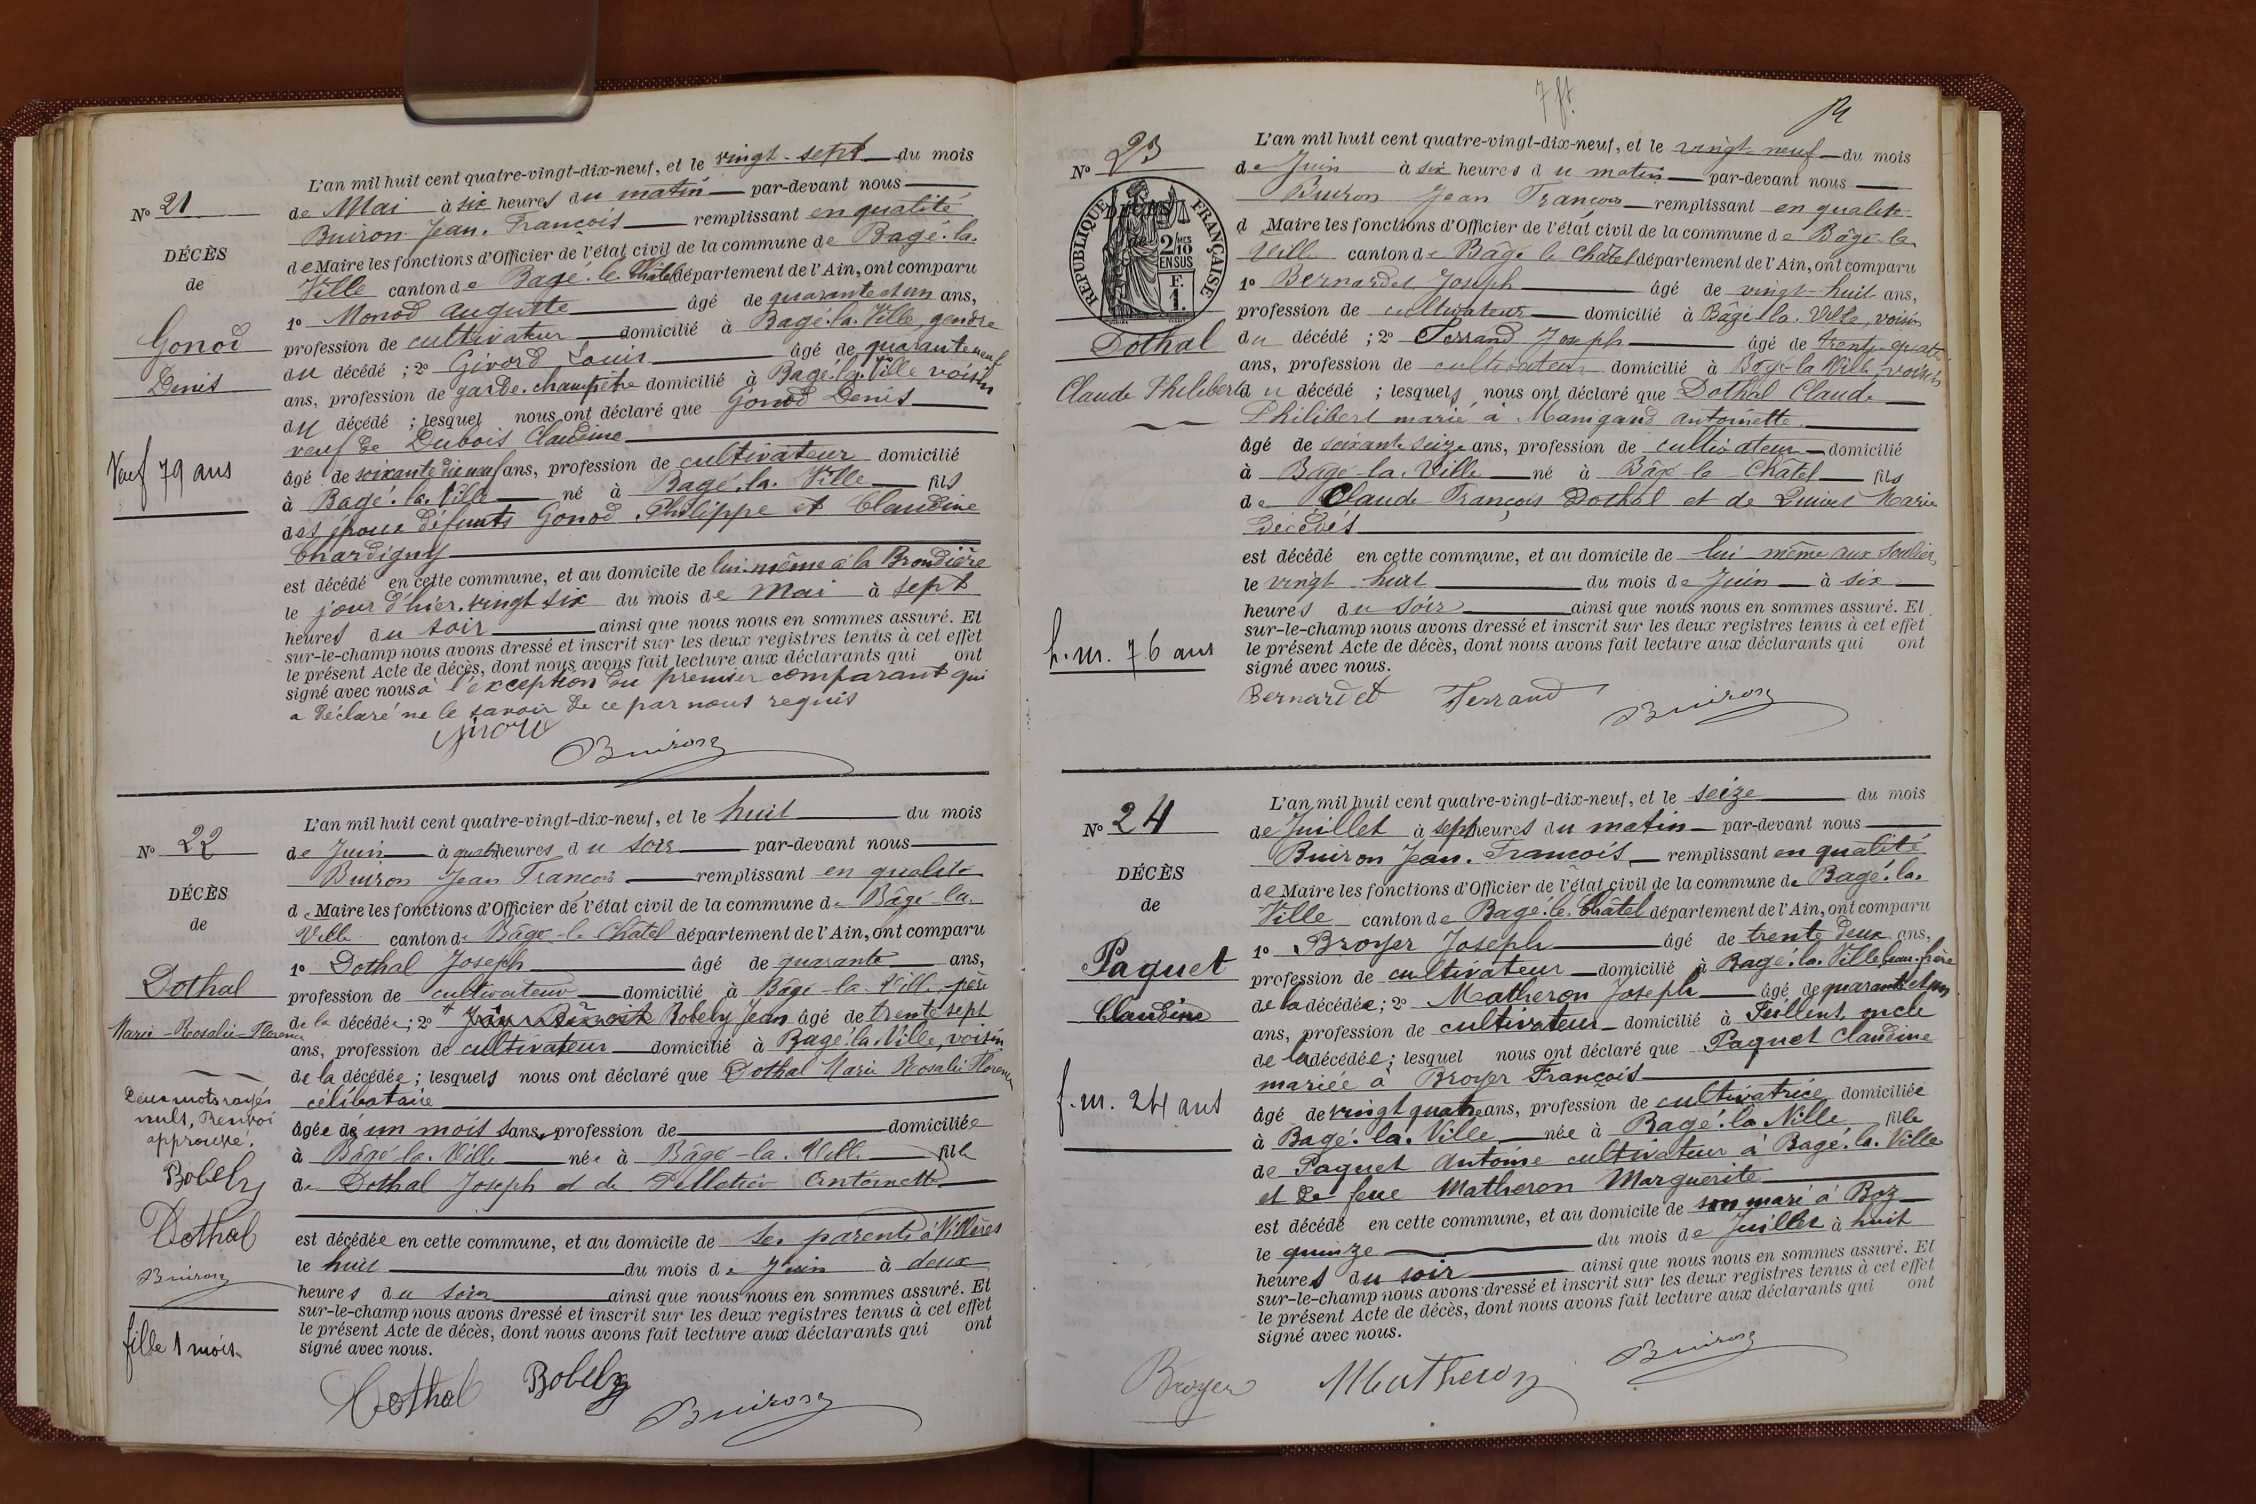 L'an mil huit cent quatre-vingt-dix-neuf, et le vingt-sept du mois
No 21
de Mai à six heures du matin par-devant nous
Buiron Jean-François remplissant en qualité
DÉCÈS
de Maire les fonctions d'Officier de l'état civil de la commune de Bagé-la-
de
Ville canton de Bagé-le-Châtel département de l'Ain, ont comparu
1o Monod Auguste âgé de quarante et un ans,
Gonod
profession de cultivateur domicilié à Bagé-la-Ville, gendre
Denis
du décédé ; 2o Givord Louis âgé de quarante neuf
ans, profession de garde-champêtre domicilié à Bagé-la-Ville voisin
du décédé ; lesquel nous ont déclaré que Gonod Denis
veuf de Dubois Claudine
Veuf 79 ans
âgé de soixante dix neuf ans, profession de cultivateur domicilié
à Bagé-la-Ville né à Bagé-la-Ville fils
des époux défunts Gonod Philippe et Claudine
Chardigny
est décédé en cette commune, et au domicile de lui-même à la Brondière
le jour d'hier, vingt six du mois de Mai à sept
heures du soir ainsi que nous nous en sommes assuré. Et
sur-le-champ nous avons dressé et inscrit sur les deux registres tenus à cet effet
le présent Acte de décès, dont nous avons fait lecture aux déclarants qui ont
signé avec nous à l'exception du premier comparant qui
a déclaré ne le savoir de ce par nous requis
Buiron
L'an mil huit cent quatre-vingt-dix-neuf, et le huit du mois
No 22
de Juin à quatre heures du soir par-devant nous
Buiron Jean François remplissant en qualité
DÉCÈS
de Maire les fonctions d'Officier de l'état civil de la commune de Bâgé-la-
de
Ville canton de Bâgé-le-Châtel département de l'Ain, ont comparu
1o Dothal Joseph âgé de quarante ans,
Dothal
profession de cultivateur domicilié à Bâgé-la-Ville, père
Marie-Rosalie-Florence
de la décédée ; 2o Bobely Jean âgé de trente sept
ans, profession de cultivateur domicilié à Bagé-la-Ville, voisin
de la décédée ; lesquels nous ont déclaré que Dothal Marie Rosalie Florence
célibataire
Deux mots rayés
nuls, Renvoi
approuvé.
âgée de un mois sans profession de domiciliée
à Bâgé-la-Ville née à Bâgé-la-Ville fille
de Dothal Joseph et de Pelletier Antoinette
Bobely
Dothal
Buiron
est décédée en cette commune, et au domicile de ses parents à Villères
le huit du mois de Juin à deux
heures du soir ainsi que nous nous en sommes assuré. Et
sur-le-champ nous avons dressé et inscrit sur les deux registres tenus à cet effet
le présent Acte de décès, dont nous avons fait lecture aux déclarants qui ont
signé avec nous.
fille 1 mois
Dothal Bobely
Buiron
L'an mil huit cent quatre-vingt-dix-neuf, et le vingt-neuf du mois
No 23
de Juin à six heures du matin par-devant nous
Buiron Jean François remplissant en qualité
DÉCÈS
de
RÉPUBLIQUE FRANÇAISE
2/10 EN SUS
F. 1.
de Maire les fonctions d'Officier de l'état civil de la commune de Bâgé-la-
Ville canton de Bâgé-le-Châtel département de l'Ain, ont comparu
1o Bernardet Joseph âgé de vingt-huit ans,
profession de cultivateur domicilié à Bâgé-la-Ville, voisin
Dothal
du décédé ; 2o Ferrand Joseph âgé de trente-quatre
ans, profession de cultivateur domicilié à Bagé-la-Ville, voisin
Claude Philibert
du décédé ; lesquels nous ont déclaré que Dothal Claude
Philibert marié à Manigand Antoinette
âgé de soixante seize ans, profession de cultivateur domicilié
à Bagé-la-Ville né à Bâgé-le-Châtel fils
de Claude François Dothal et de Marie
décédés
est décédé en cette commune, et au domicile de lui même aux
le vingt huit du mois de Juin à six
heures du soir ainsi que nous nous en sommes assuré. Et
sur-le-champ nous avons dressé et inscrit sur les deux registres tenus à cet effet
h. m. 76 ans
le présent Acte de décès, dont nous avons fait lecture aux déclarants qui ont
signé avec nous.
Bernardet Ferrand Buiron
L'an mil huit cent quatre-vingt-dix-neuf, et le seize du mois
No 24
de Juillet à sept heures du matin par-devant nous
Buiron Jean-François remplissant en qualité
DÉCÈS
de Maire les fonctions d'Officier de l'état civil de la commune de Bagé-la-
de
Ville canton de Bagé-le-Châtel département de l'Ain, ont comparu
1o Broyer Joseph âgé de trente deux ans,
Paquet
profession de cultivateur domicilié à Bagé-la-Ville, beau-frère
Claudine
de la décédée ; 2o Matheron Joseph âgé de quarante et un
ans, profession de cultivateur domicilié à Feillens, oncle
de la décédée ; lesquel nous ont déclaré que Paquet Claudine
mariée à Broyer François
f. m. 24 ans
âgé de vingt quatre ans, profession de cultivatrice domiciliée
à Bagé-la-Ville née à Bagé-la-Ville fille
de Paquet Antoine cultivateur à Bagé-la-Ville
et de feue Matheron Marguerite
est décédé en cette commune, et au domicile de son mari à Boz
le quinze du mois de Juillet à huit
heures du soir ainsi que nous nous en sommes assuré. Et
sur-le-champ nous avons dressé et inscrit sur les deux registres tenus à cet effet
le présent Acte de décès, dont nous avons fait lecture aux déclarants qui ont
signé avec nous.
Broyer Matheron Buiron